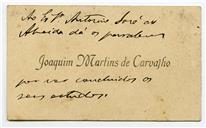 Ao Ex.mo Antonio José de
Almeida dá os parabens
Joaquim Martins de Carvalho
por ver concluidos os
seus estudos.